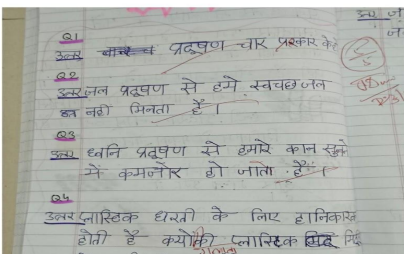 Q1
उत्तर प्रदूषण चार प्रकार के
Q2
उत्तर जल प्रदूषण से हमे स्वचछ जल
नही मिलता है ।
Q3
उत्तर ध्वनि प्रदूषण से हमारे कान सुनने
में कमजोर हो जाते है ।
Q4
उत्तर प्लास्टिक धरती के लिए हानिकारक
होती है क्योकी प्लास्टिक
5/5